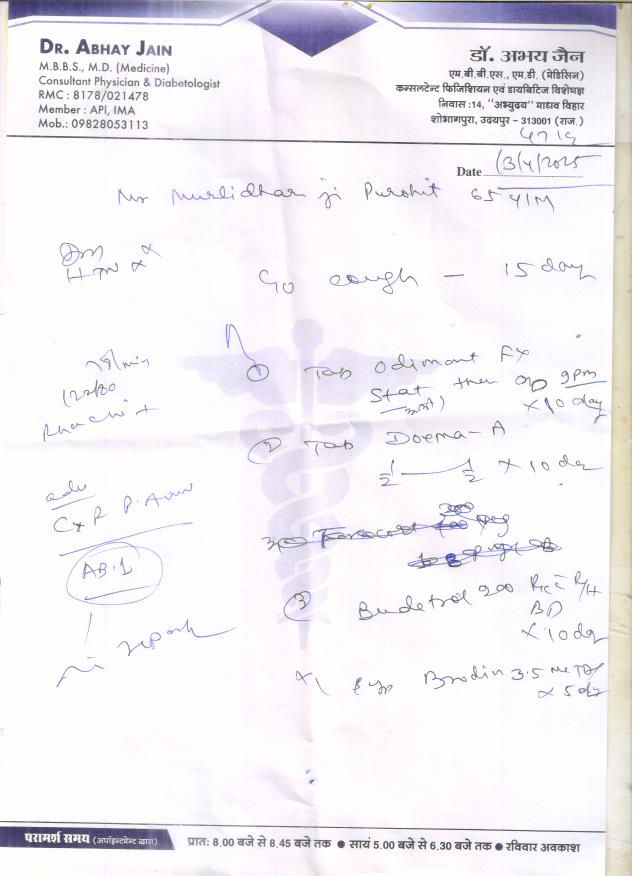 DR. ABHAY JAIN
M.B.B.S., M.D. (Medicine)
Consultant Physician & Diabetologist
RMC : 8178/021478
Member : API, IMA
Mob.: 09828053113
डॉ. अभय जैन
एम.बी.बी.एस., एम.डी. (मेडिसिन)
कन्सलटेन्ट फिजिशियन एवं डायबिटिज विशेषज्ञ
निवास :14, "अभ्युदय" माधव विहार
शोभागपुरा, उदयपुर - 313001 (राज.)
Date 13/4/2025
Mr Murlidhar ji Purohit 65 Y/M
DM
HTN
C/o cough - 15 day
122/80
Rhonchi +
① Tab Odimont FX
Stat then OD 9pm
x 10 day
② Tab Doxma-A
1/2 1/2 x 10 day
adv
CXR P.A view
AB.1
③ Budetrol 200
BD
x 10 day
report
Syp Brodin 3.5
x 5 day
परामर्श समय (अपॉइन्टमेन्ट द्वारा)
प्रात: 8.00 बजे से 8.45 बजे तक ● सायं 5.00 बजे से 6.30 बजे तक ● रविवार अवकाश